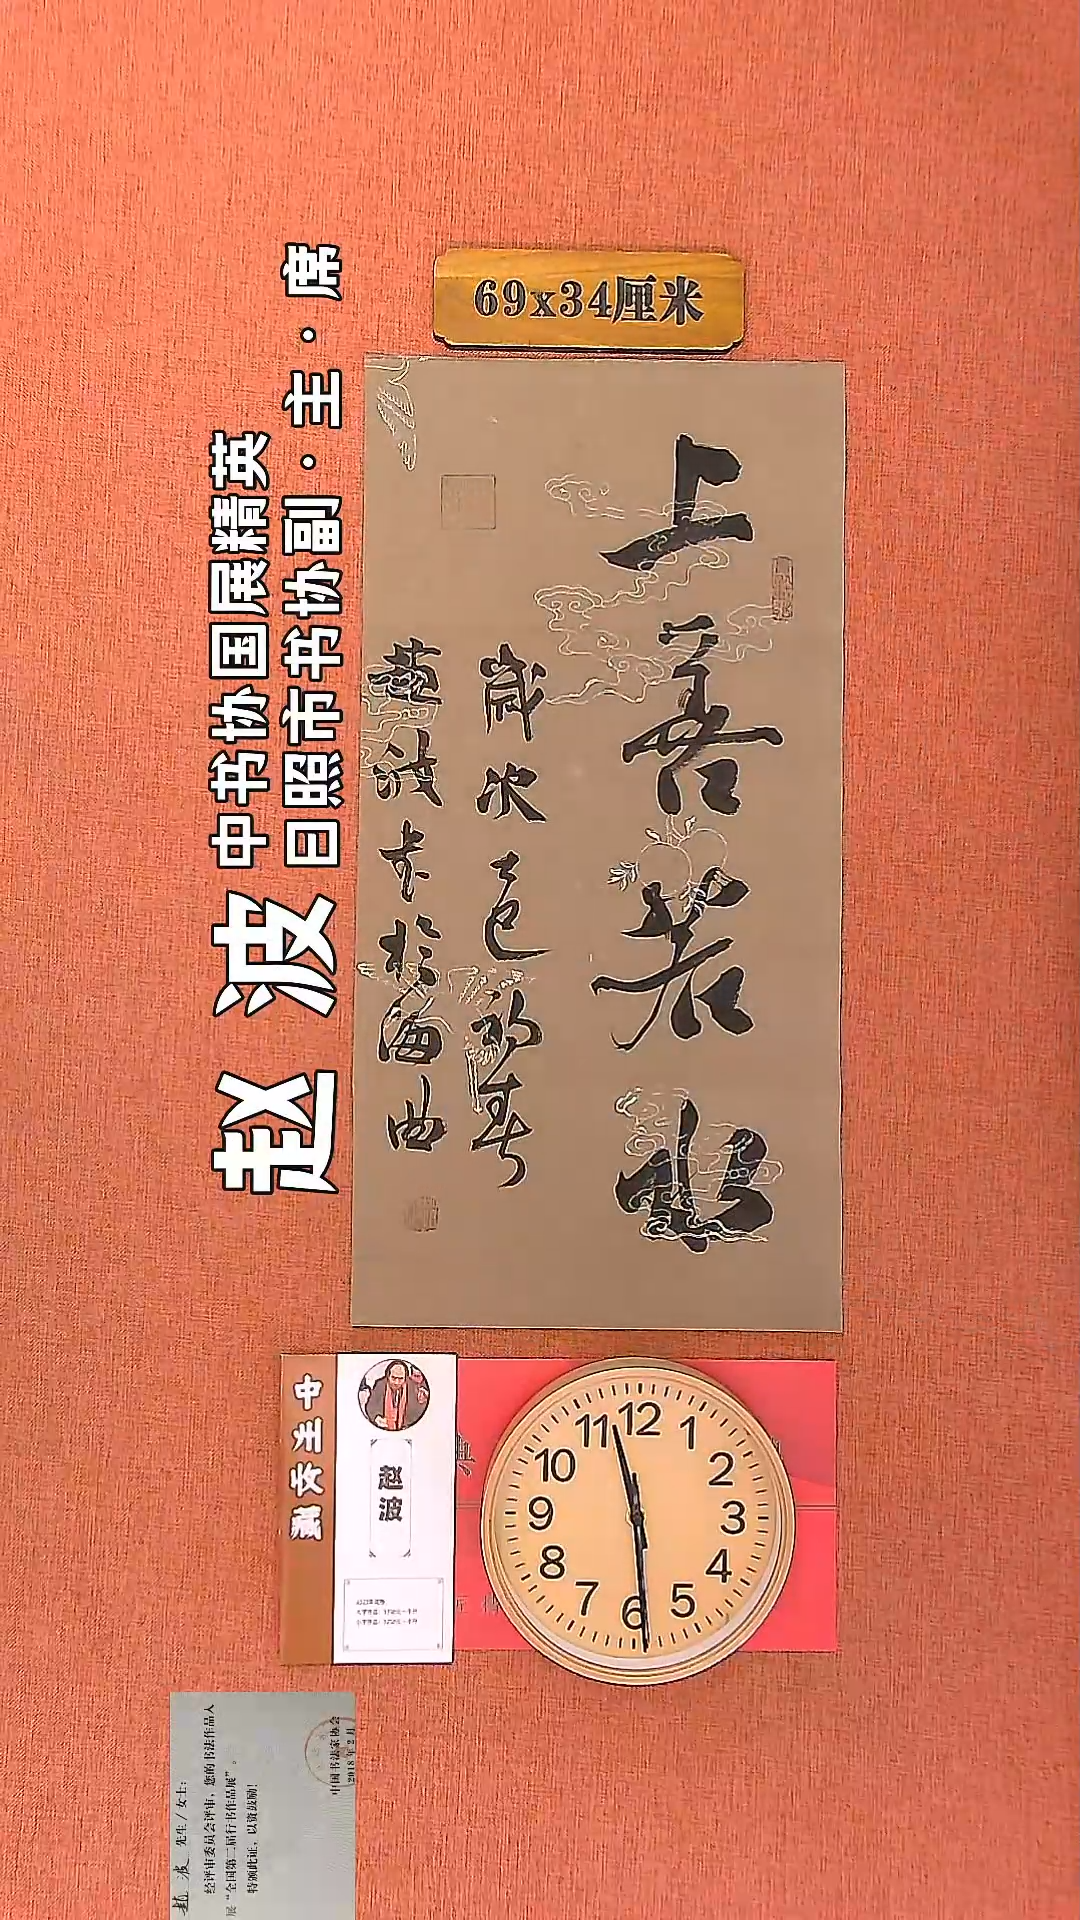 69x34厘米
上善若水
岁次乙巳初春
赵波书于海曲
赵波
中书协国展精英
日照市书协副·主·席
中国女主藏
赵波
12
1
2
3
4
5
6
7
8
9
10
11
赵波 先生/女士:
经评审委员会评审,您的书法作品入
展“全国第二届行书作品展”。
特颁此证,以资鼓励!
中国书法家协会
2018年2月